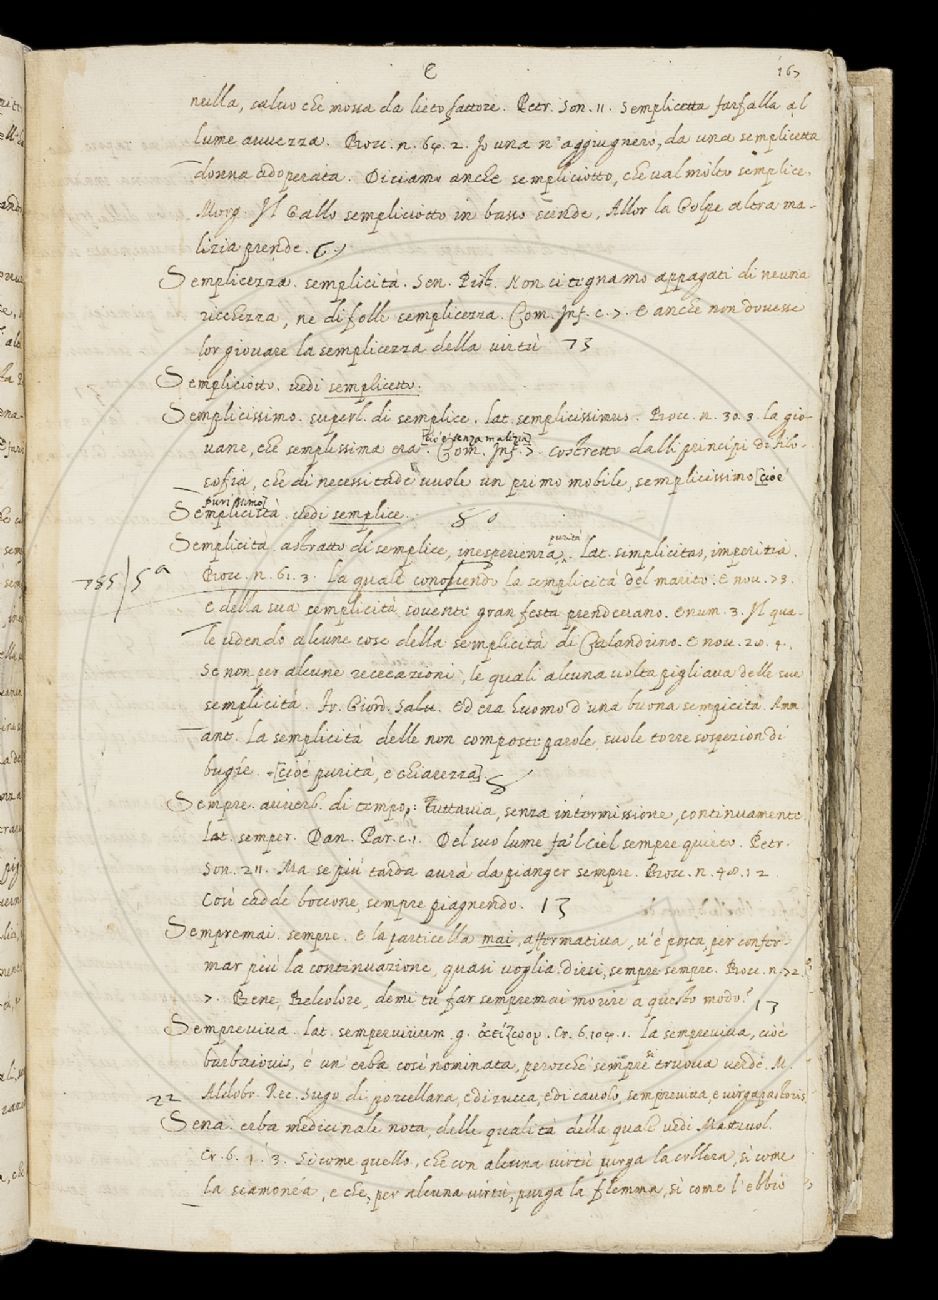 E 167
nulla, saluo che mossa da lieto fattore. Petr. Son. 11. Semplicetta farfalla al
lume auuezza. Bocc. n. 64. 2. Io una n'aggiugnerò, da una semplicetta
donna adoperata. Diciamo anche sempliciotto, che val molto semplice.
Morg. Il Gallo sempliciotto in basso scende, Allor la Golpe altra ma-
lizia prende. 6.
Semplicezza. semplicità. Sen. Pist. Non ci tegnamo appagati di neuna
ricchezza, ne di folle semplicezza. Com. Inf. c. 7. E anche non douesse
lor giouare la semplicezza della uirtù 73
Sempliciotto. uedi semplicetto.
Semplicissimo. superl. di semplice. lat. semplicissimus. Bocc. n. 30. 3. la gio-
uane, che semplissima era [cioè senza malizia]. Com. Inf. 7. costretto dalli principi di Filo-
sofia, che di necessitade uuole un primo mobile, semplicissimo [cioè
purissimo]
Semplicistà. uedi semplice. 80
Semplicità. astratto di semplice, inesperienza, purità. Lat. semplicitas, imperitia.
785/5a Bocc. n. 61. 3. La quale conoscendo la semplicità del marito. E nou. 73.
E della sua semplicità souente gran festa prendeuano. E num. 3. Il qua-
le udendo alcune cose della semplicità di Calandrino. E nou. 20. 4.
Se non per alcune recreazioni, le quali alcuna uolta pigliaua delle sue
semplicità. Fr. Giord. Salu. Ed era huomo d'una buona sempicità. Amm.
ant. La semplicità delle non composte parole, suole torre sospezion di
bugíe. [cioè purità, e chiarezza]
Sempre. auuerb. di tempo: Tuttauia, senza intermissione, continuamente.
Lat. semper. Dan. Par. c. 1. Del suo lume fa 'l Ciel sempre quieto. Petr.
Son. 211. Ma se più tarda aurà da pianger sempre. Bocc. n. 48. 12
Così cadde boccone, sempre piagnendo. 13
Sempremai. sempre. E la particella mai, affermatiua, u'è posta, per confer-
mar più la continuazione, quasi uoglia diesi, sempre sempre. Bocc. n. 72.
7. Bene, Belcolore, demi tu far sempremai morire a questo modo? 13
Sempreuiua. lat. semperuiuum. g. ἀείζωον. Cr. 6. 104. 1. La sempreuiua, cioè
barbaiouis, è un'erba così nominata, perocchè sempre si truoua uerde. M.
Aldobr. Rec. Sugo di porcellana, e di zucca, e di cauolo, sempreuiua, e uirgapastoris
22
Sena. erba medicinale nota, delle qualità della quale uedi Mattiuol.
Cr. 6. 1. 3. Si come quello, che con alcuna uirtù purga la collera, sì come
la scamonéa, e che, per alcuna uirtù, purga la flemma, sì come l'ebbio